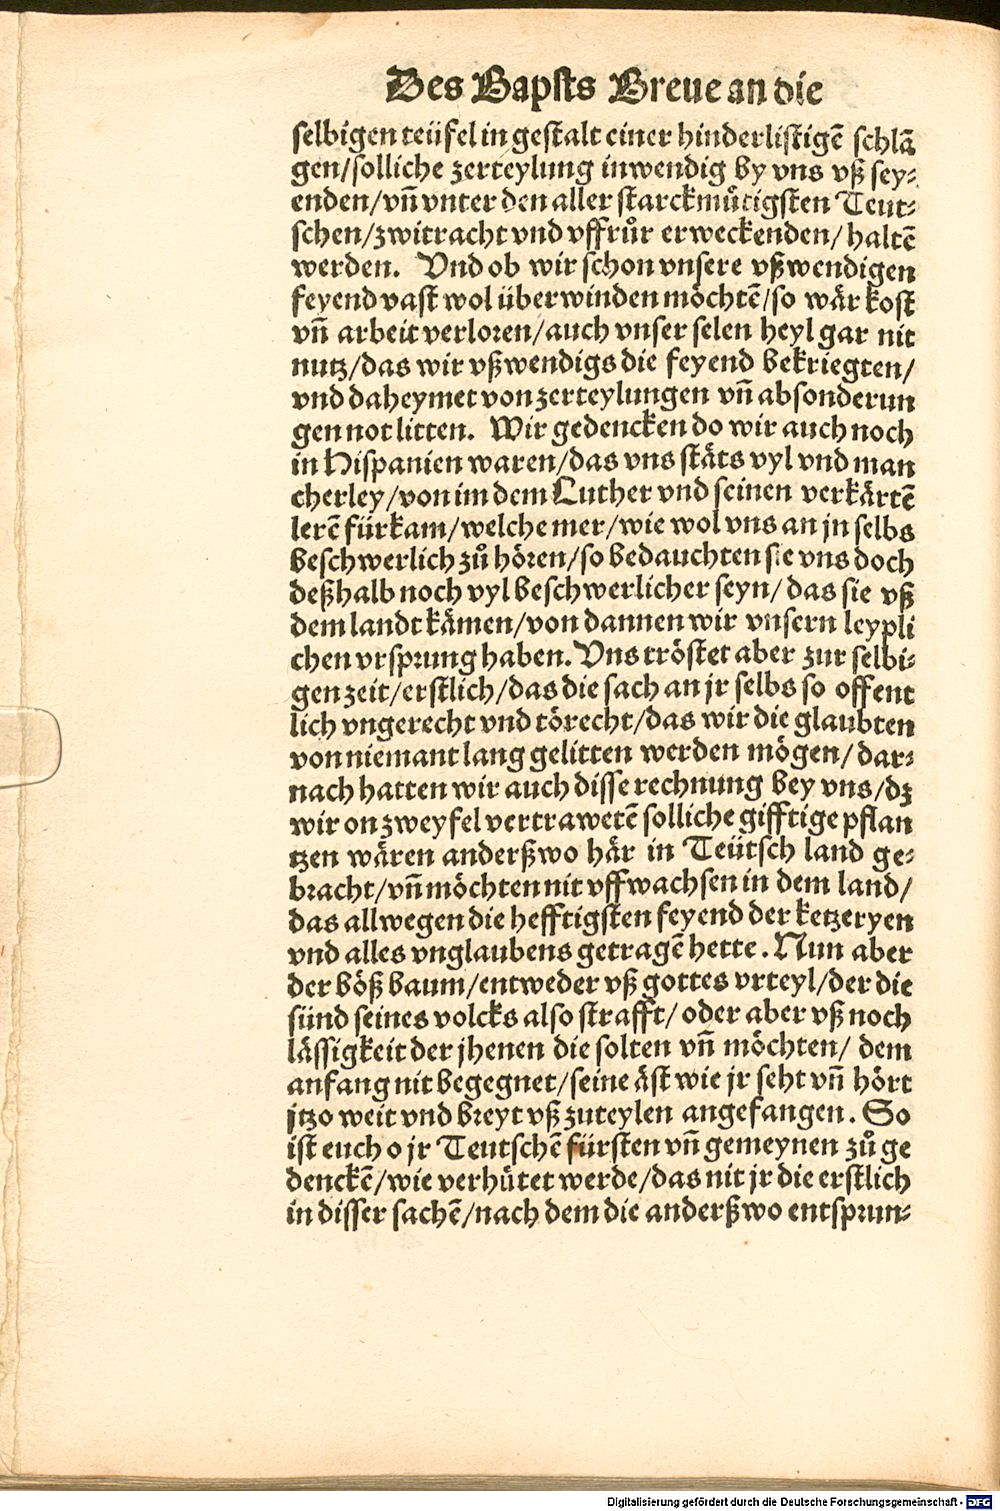 Des Bapsts Breue an die
selbigen teüfel in gestalt einer hinderlistigē schlā
gen/solliche zerteylung inwendig by vns vß sey⸗
enden/vn̄ vnter den aller starckmuͤtigsten Teut⸗
schen/zwitracht vnd vffruͦr erweckenden/haltē
werden. Vnd ob wir schon vnsere vßwendigen
feyend vast wol überwinden möchtē/so wär kost
vn̄ arbeit verloren/auch vnser selen heyl gar nit
nutz/das wir vßwendigs die feyend bekriegten/
vnd daheymet von zerteylungen vn̄ absonderun
gen not litten. Wir gedencken do wir auch noch
in Hispanien waren/das vns stäts vyl vnd man
cherley/von im dem Luther vnd seinen verkärtē
lerē fürkam/welche mer/wie wol vns an jn selbs
beschwerlich zuͦ hören/so bedauchten sie vns doch
deßhalb noch vyl beschwerlicher seyn/das sie vß
dem landt kämen/von dannen wir vnsern leypli
chen vrsprung haben. Vns tröstet aber zur selbi⸗
gen zeit/erstlich/das die sach an jr selbs so offent
lich vngerecht vnd törecht/das wir die glaubten
von niemant lang gelitten werden mögen/dar⸗
nach hatten wir auch disse rechnung bey vns/dz
wir on zweyfel vertrawetē solliche gifftige pflan
tzen wären anderßwo här in Teütsch land ge⸗
bracht/vn̄ möchten nit vffwachsen in dem land/
das allwegen die hefftigsten feyend der ketzeryen
vnd alles vnglaubens getragē hette. Nun aber
der böß baum/entweder vß gottes vrteyl/der die
sünd seines volcks also strafft/oder aber vß noch
lässigkeit der jhenen die solten vn̄ möchten/dem
anfang nit begegnet/seine äst wie jr seht vn̄ hört
jtzo weit vnd breyt vß zuteylen angefangen. So
ist euch o jr Teutschē fürsten vn̄ gemeynen zuͦ ge
denckē/wie verhütet werde/das nit jr die erstlich
in disser sachē/nach dem die anderßwo entsprun⸗
Digitalisierung gefördert durch die Deutsche Forschungsgemeinschaft - DFG